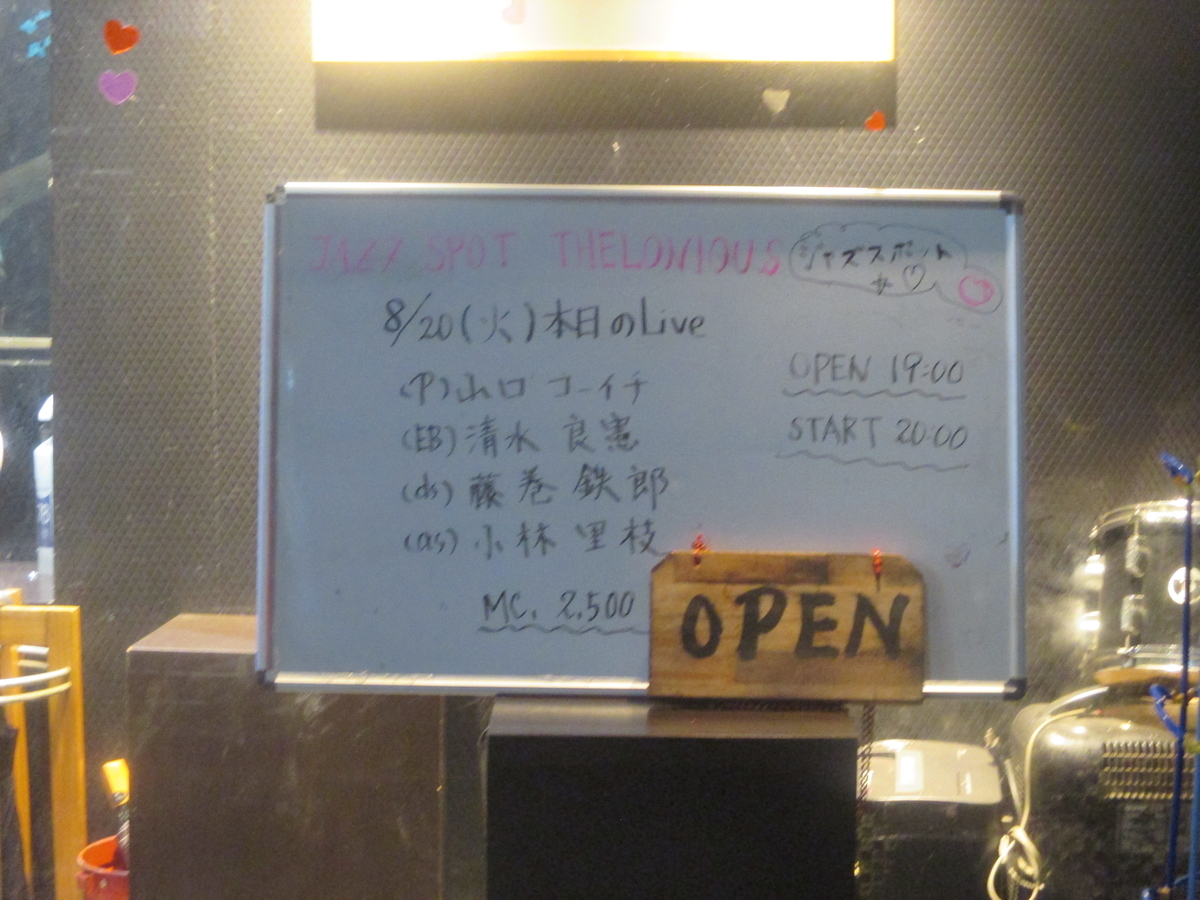 JAZZ SPOT THELONIOUS
ジャズスポット
8/20(火)本日のLive
(P)山口 コーイチ
(EB)清水 良憲
(ds)藤巻 鉄郎
(as)小林 里枝
MC. 2,500
OPEN 19:00
START 20:00
OPEN